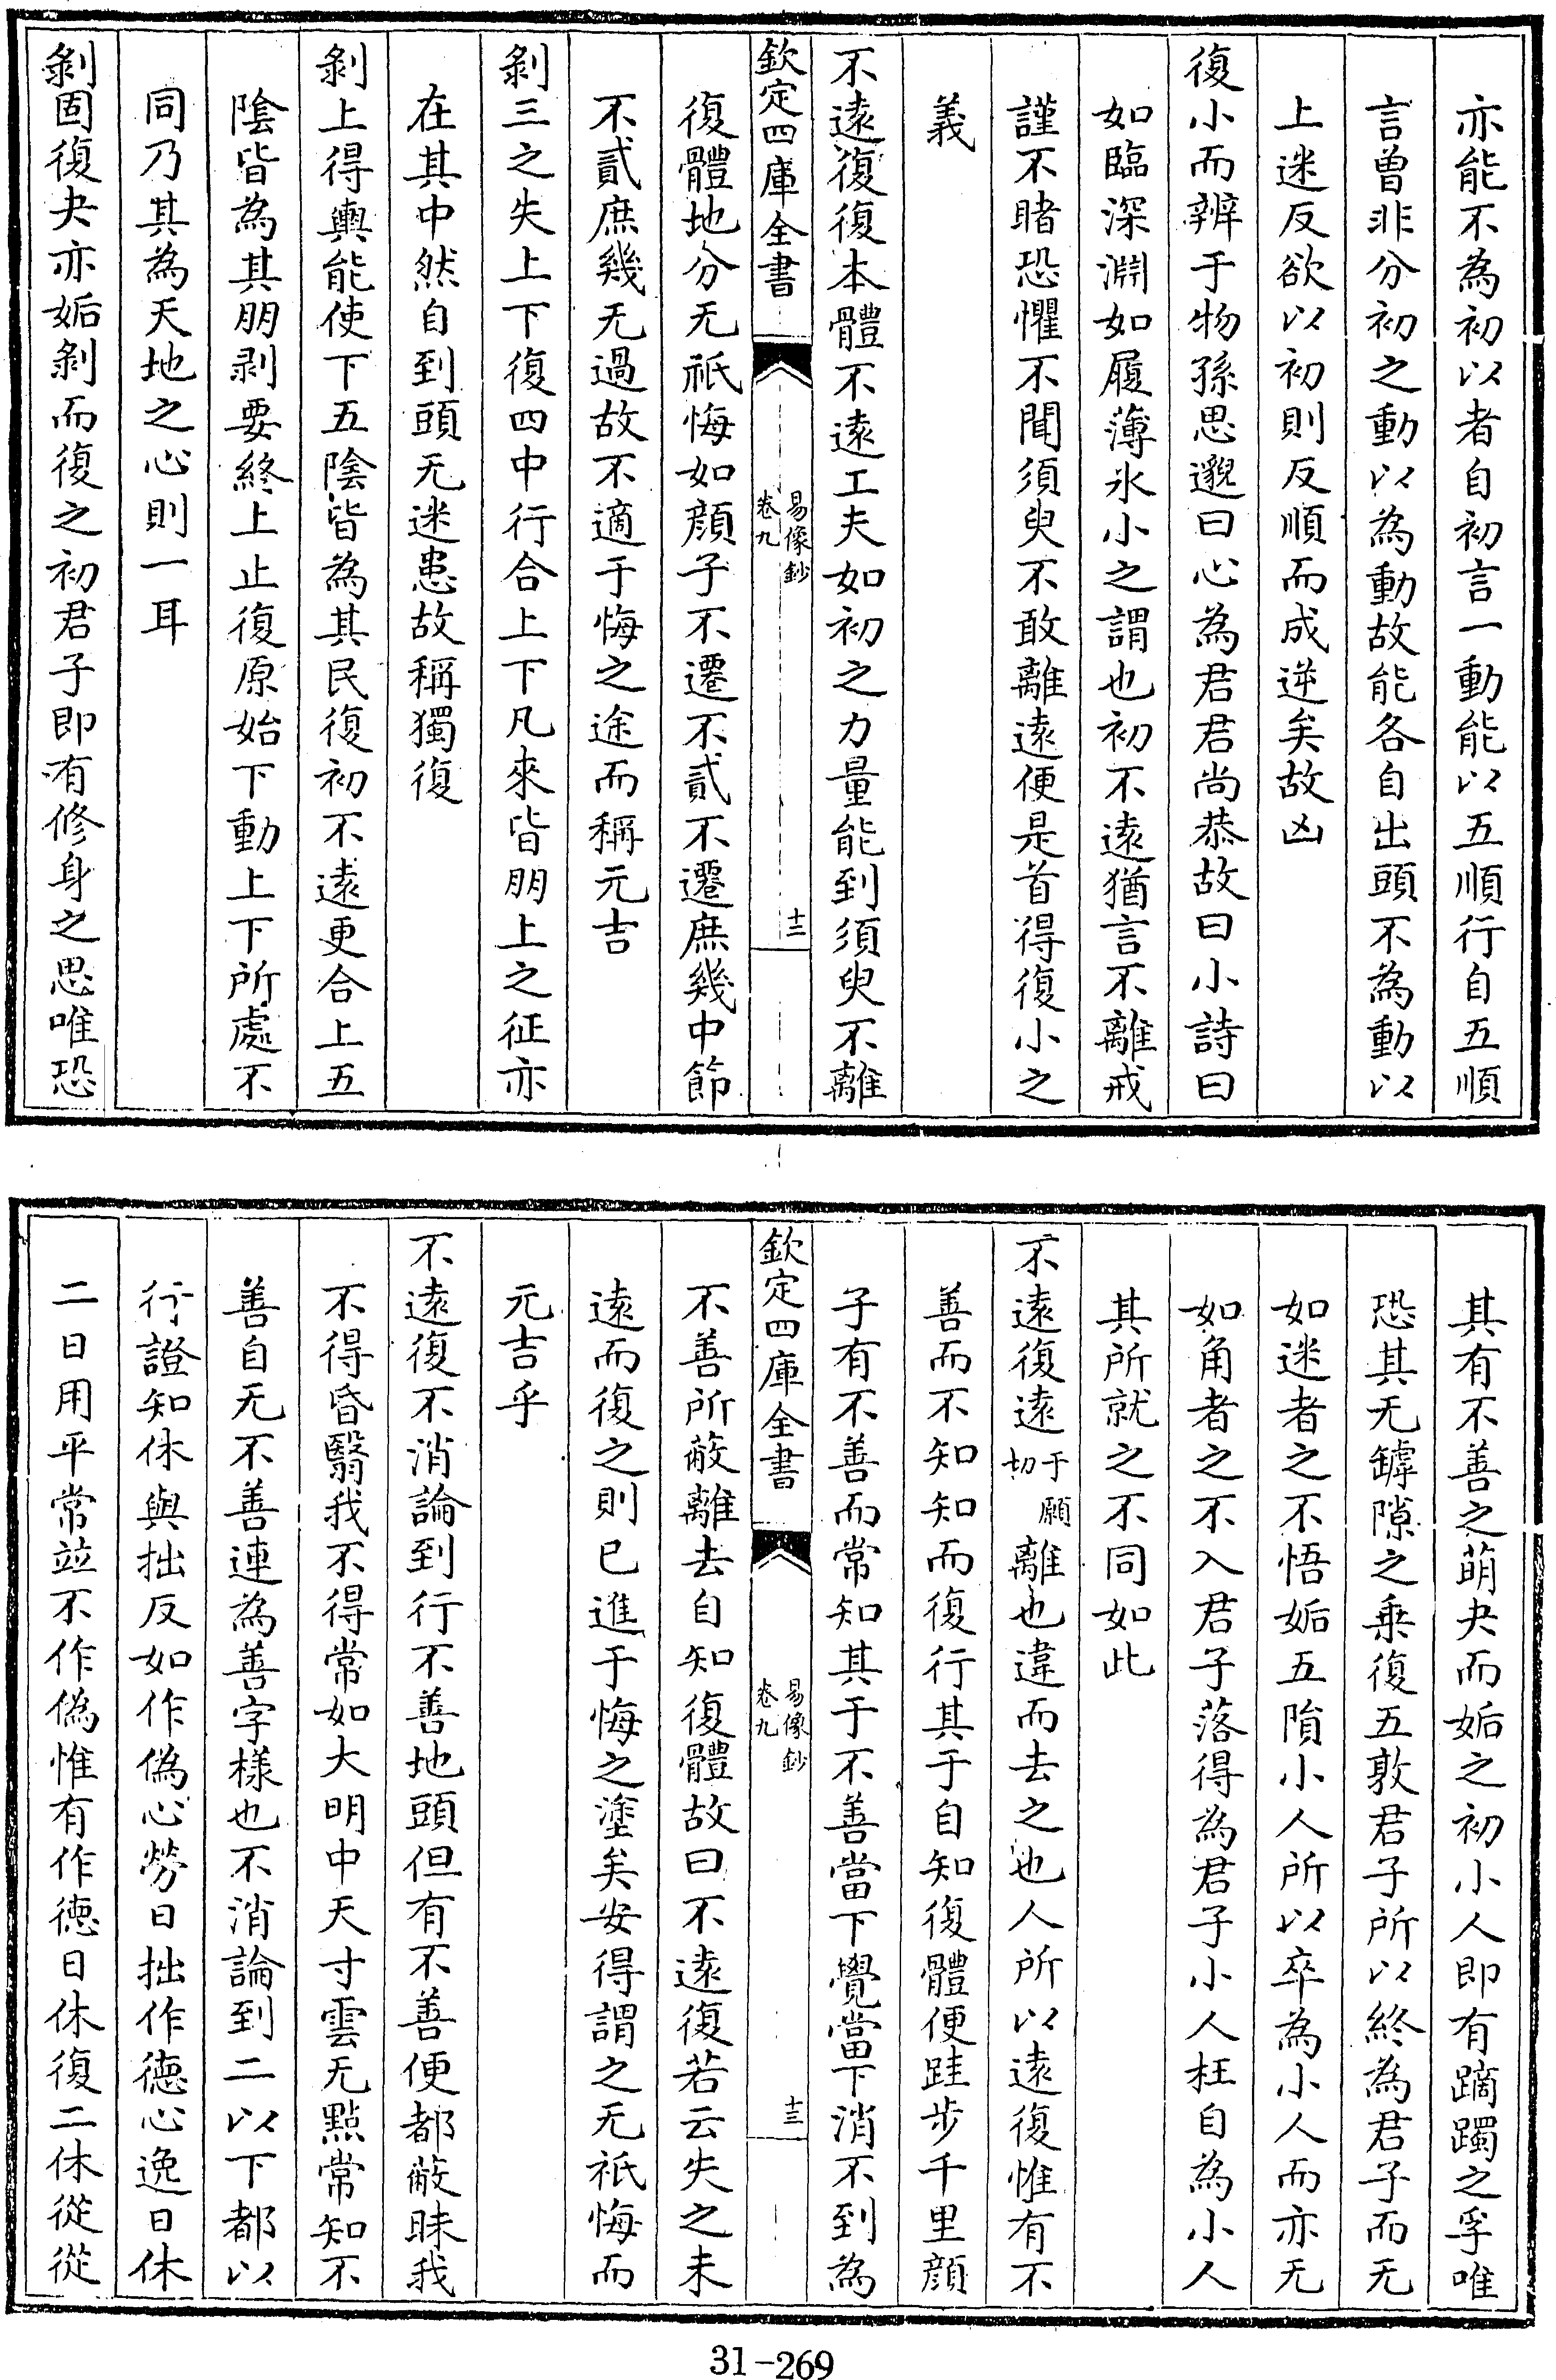 亦能不為初以者自初言一動能以五順行自五順
言曾非分初之動以為動故能各自出頭不為動以
上迷反欲以初則反順而成逆矣故凶
復小而辨于物孫思邈曰心為君君尚恭故曰小詩曰
如臨深淵如履薄氷小之謂也初不遠猶言不離戒
謹不睹恐懼不聞須臾不敢離遠便是首得復小之
義
不遠復復本體不遠工夫如初之力量能到須臾不離
欽定四庫全書
易像鈔
卷九
十二
復體地分无祇悔如顔子不遷不貳不遷庶幾中節
不貳庶幾无過故不適于悔之途而稱元吉
剝三之失上下復四中行合上下凡來皆朋上之征亦
在其中然自到頭无迷患故稱獨復
剝上得輿能使下五陰皆為其民復初不遠更合上五
陰皆為其朋剥要終上止復原始下動上下所處不
同乃其為天地之心則一耳
剝固復夬亦姤剝而復之初君子即有修身之思唯恐
其有不善之萌夬而姤之初小人即有蹢躅之孚唯
恐其无罅隙之乗復五敦君子所以終為君子而无
如迷者之不悟姤五隕小人所以卒為小人而亦无
如角者之不入君子落得為君子小人枉自為小人
其所就之不同如此
不遠復遠于願切離也違而去之也人所以遠復惟有不
善而不知知而復行其于自知復體便跬步千里顔
子有不善而常知其于不善當下覺當下消不到為
欽定四庫全書
易像鈔
卷九
十三
不善所蔽離去自知復體故曰不遠復若云失之未
遠而復之則已進于悔之塗矣安得謂之无祇悔而
元吉乎
不遠復不消論到行不善地頭但有不善便都蔽昧我
不得昏翳我不得常如大明中天寸雲无㸃常知不
善自无不善連為善字様也不消論到二以下都以
行證知休與拙反如作偽心勞日拙作德心逸日休
二日用平常竝不作偽惟有作德日休復二休從從
31-269